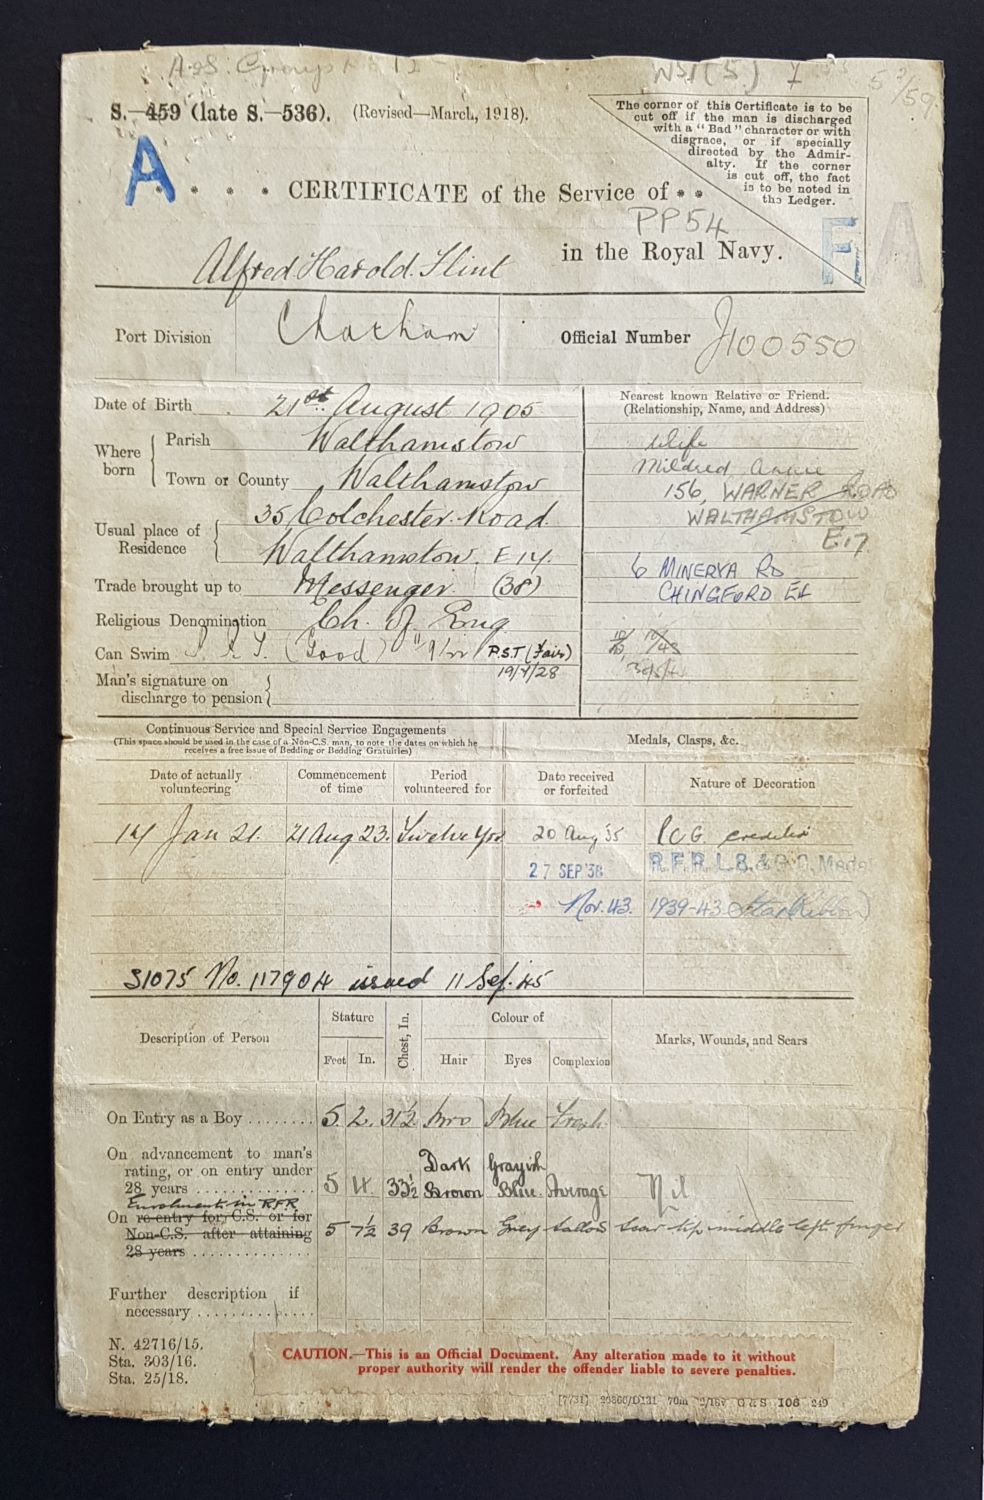 A & S. Group
S.—459 (late S.—536). (Revised—March, 1918).
The corner of this Certificate is to be
cut off if the man is discharged
with a "Bad" character or with
disgrace, or if specially
directed by the Admir-
alty. If the corner
is cut off, the fact
is to be noted in
the Ledger.
A
CERTIFICATE of the Service of
PP54
Alfred Harold Flint in the Royal Navy.
Port Division Chatham Official Number J100550
Date of Birth 21st August 1905
Nearest known Relative or Friend.
(Relationship, Name, and Address)
Where born Parish Walthamstow
Town or County Walthamstow
Wife
Mildred Annie
156, WARNER ROAD
WALTHAMSTOW
E17
Usual place of Residence 35 Colchester Road
Walthamstow. E 17.
6 MINERVA RD
CHINGFORD E4
Trade brought up to Messenger (38)
Religious Denomination Ch. of Eng
Can Swim (Good) P.S.T (Fair)
19/4/28
Man's signature on
discharge to pension
Continuous Service and Special Service Engagements
(This space should be used in the case of a Non-C.S. man, to note the dates on which he
receives a free issue of Bedding or Bedding Gratuities)
Medals, Clasps, &c.
Date of actually volunteering Commencement of time Period volunteered for Date received or forfeited Nature of Decoration
14 Jan 21. 21 Aug 23. Twelve Yrs 20 Aug 35 credited
27 SEP '38 R.F.R. L.S. & G.C. Medal
Nov. 43. 1939-43 Star (Ribbon)
S1075 No. issued 11 Sep. 45
Description of Person Stature Feet In. Chest, In. Colour of Hair Eyes Complexion Marks, Wounds, and Scars
On Entry as a Boy 5 2. 31½ Bro Blue Fresh
On advancement to man's
rating, or on entry under
28 years 5 4 33½ Dark Brown Grayish Blue. Average Nil
Enrolment in RFR
On re-entry for C.S. or for
Non-C.S. after attaining
28 years 5 7½ 39 Brown Grey Sallow Scar tip middle left finger
Further description if
necessary
N. 42716/15.
Sta. 303/16.
Sta. 25/18.
CAUTION.—This is an Official Document. Any alteration made to it without
proper authority will render the offender liable to severe penalties.